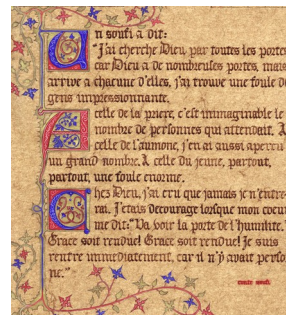 Un soufi a dit:
"J'ai cherche Dieu, par toutes les portes
car Dieu a de nombreuses portes, mais
arrive a chacune d'elles, j'ai trouve une foule de
gens impressionnante.
A celle de la priere, c'est inimaginable le
nombre de personnes qui attendait. A
celle de l'aumone, j'en ai aussi apercu
un grand nombre. A celle du jeune, partout,
partout, une foule enorme.
Chez Dieu, j'ai cru que jamais je n'entre-
rai. J'etais decourage lorsque mon coeur
me dit: "Va voir la porte de l'humilite."
Grace soit rendue! Grace soit rendue! Je suis
rentre immediatement, car il n'y avait perso
ne."
conte soufi